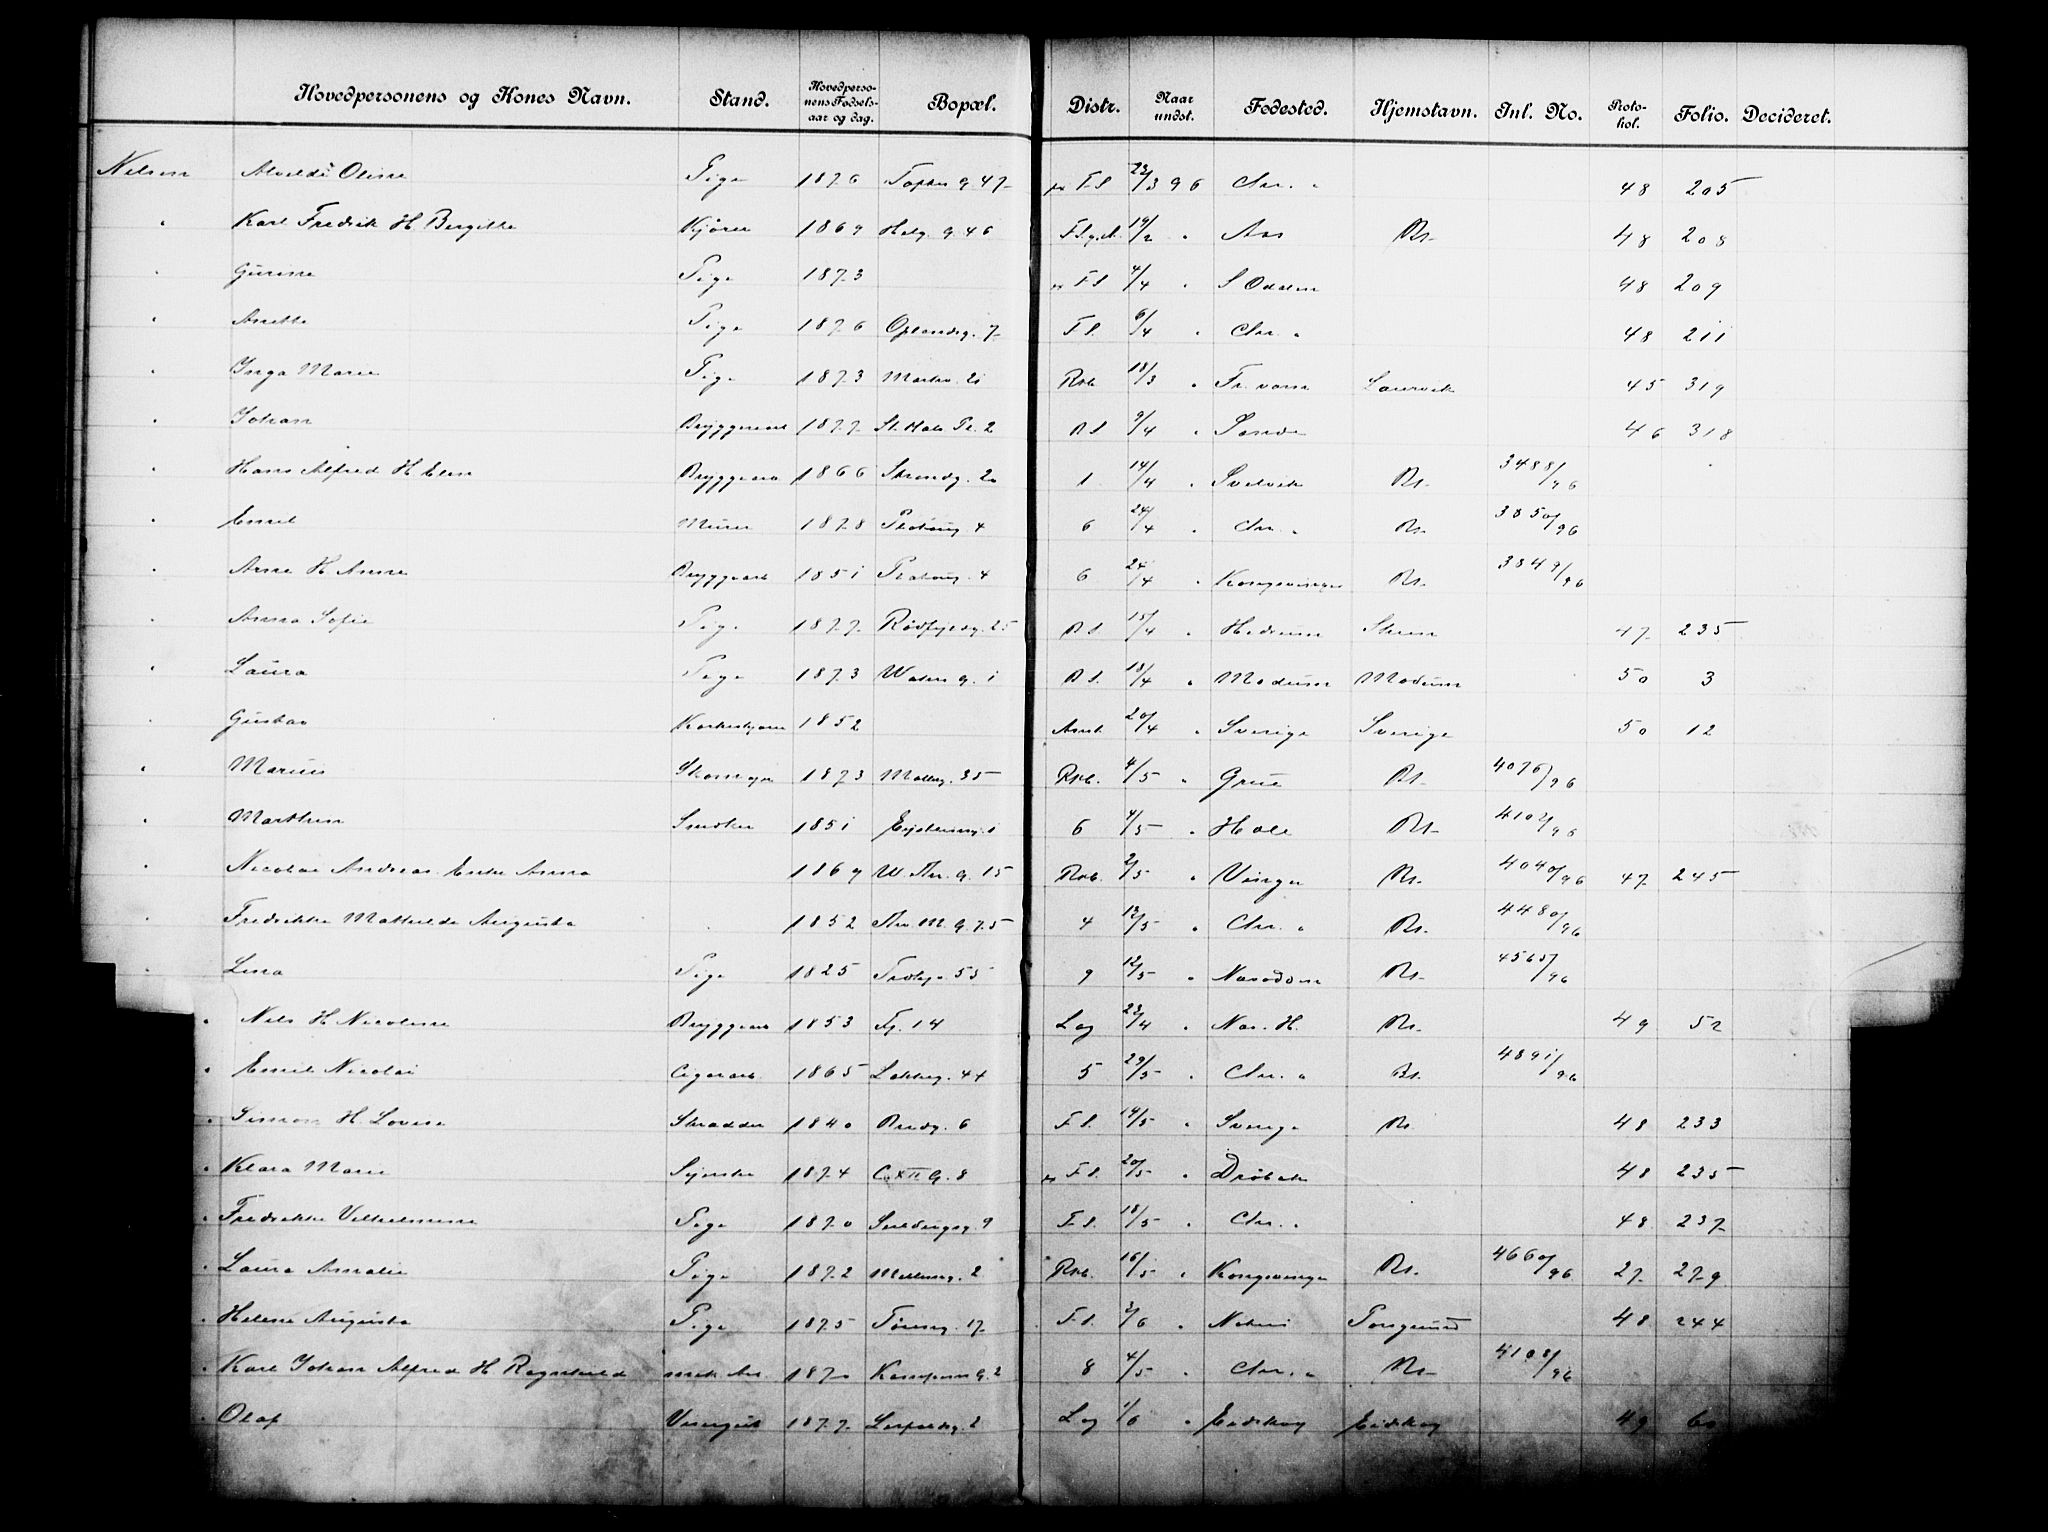 Hovedpersonens og Kones Navn. Stand. Hovedpersonens Fødselsaar og dag. Bopæl. Distr. Naar undst. Fødested. Hjemstavn. Inl. No. Protokol. Folio. Decideret.
Nilsen Alvilde Oline Pige 1876 g 47 F.S. 23/3 96 Chr. " 48 205
" Karl Fredrik H. Bergitte Kjører 1869 Helg. g. 46 19/2 " Aas Bt. 48 208
" Gurine Pige 1873 F.S. 4/4 " S Odalen 48 209
" Anette Pige 1876 Oplandsg. 7 F.S. 6/4 " Chr. " 48 211
" Inga Marie Pige 1873 Markv. 21 Rvb. 18/3 " Fr.værn Laurvik 45 319
" Johan Bryggearb 1877 St. Hals Pl. 2 B S 9/4 " Sande 46 318
" Hans Alfred H. Elen Bryggearb 1866 Strandg. 20 1 14/4 " Svelvik Bt. 3488/96
" Emil Murer 1878 Platoug. 4 6 24/4 " Chr. " Bt. 3850/96
" Arne H. Anne Bryggearb 1851 Platoug. 4 6 24/4 " Kongsvinger Bt. 3849/96
" Anna Sofie Pige 1877 Rødfyldg. 25 B S. 15/4 " Hedrum Skien 47 235
" Laura Pige 1873 g. 1 B S. 18/4 " Modum Modum 50 3
" Gustav 1852 20/4 " Sverige Sverige 50 12
" Marius Skomager 1873 Møllerg. 35 Rvb. 4/5 " Grue Bt. 4076/96
" Marthin Snedker 1851 1 6 4/5 " Hole Bt. 4102/96
" Nicolai Andreas Enke Anna 1869 W. Thr. g. 15 Rvb. 2/5 " Vinger Bt. 4040/96 47 245
" Fredrikke Mathilde Augusta 1852 Thv. M. g. 75 4 12/5 " Chr. " Bt. 4480/96
" Lina Pige 1825 55 9 12/5 " Næsodden Bt. 4565/96
" Nils H. Nicoline Bryggearb 1853 14 Log 22/4 " Bt. 49 52
" Emil Nicolai Cigararb. 1865 Løkkeg. 44 5 29/5 " Chr. " Bt. 4891/96
" Simon H. Lovise Skrædder 1840 Bredg. 6 F.S. 19/5 " Sverige Bt. 48 233
" Klara Marie Syerske 1874 C. XII g. 8 F.S. 20/5 " Drøbak 48 235
" Fredrikke Vilhelmine Pige 1870 Seilduksg. 9 F.S. 18/5 " Chr. " 48 237
" Laura Amalie Pige 1872 Møllerg. 2 Rvb. 16/5 " Kongsvinger Bt. 4660/96 27 279
" Helene Augusta Pige 1875 17 F.S. 2/6 " 48 244
" Karl Johan Alfred H. Ragnhild 1870 Kampens g. 2 8 4/5 " Chr. " Bt. 4108/96
" Olaf Visergut 1877 Leopoldsg. 2 Log 1/6 " Eidskog Eidskog 49 60